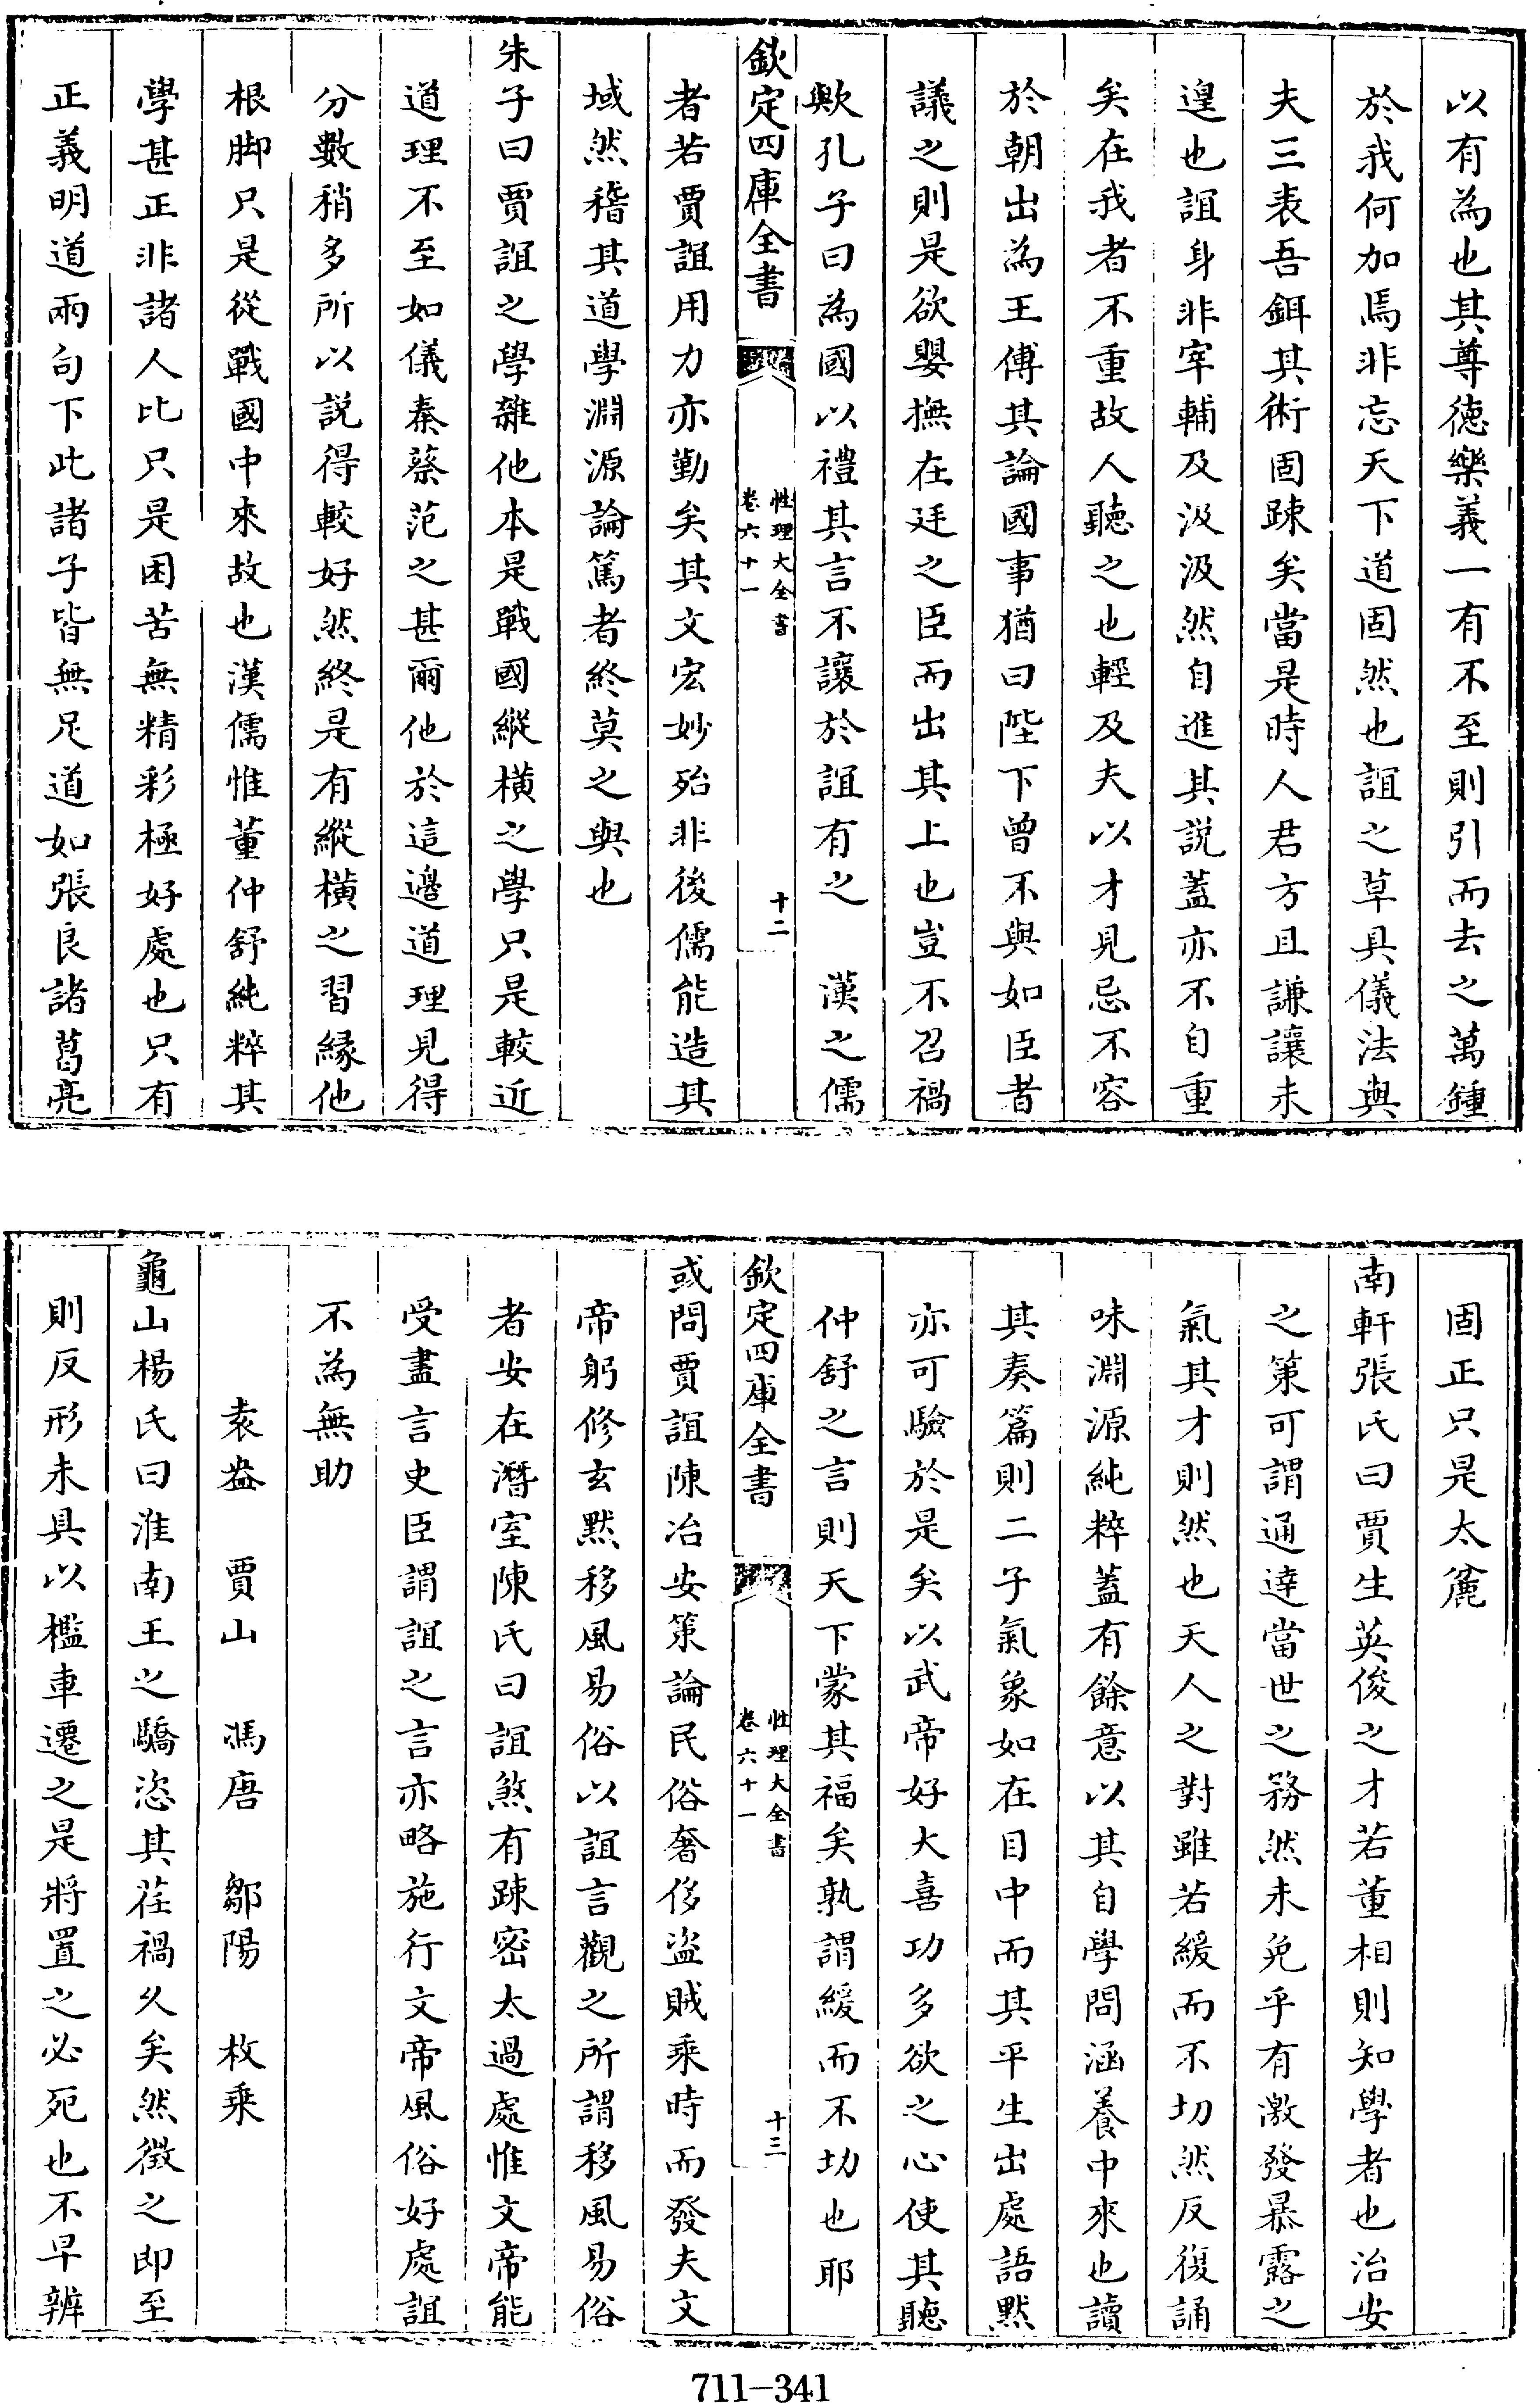 以有為也其尊德樂義一有不至則引而去之萬鍾
於我何加焉非忘天下道固然也誼之草具儀法與
夫三表吾餌其術固踈矣當是時人君方且謙讓未
遑也誼身非宰輔及汲汲然自進其説蓋亦不自重
矣在我者不重故人聽之也輕及夫以才見忌不容
於朝出為王傅其論國事猶曰陛下曾不與如臣者
議之則是欲嬰撫在廷之臣而出其上也豈不召禍
歟孔子曰為國以禮其言不讓於誼有之　漢之儒
欽定四庫全書
性理大全書
卷六十一
十二
者若賈誼用力亦勤矣其文宏妙殆非後儒能造其
域然稽其道學淵源論篤者終莫之與也
朱子曰賈誼之學雜他本是戰國縱橫之學只是較近
道理不至如儀秦蔡范之甚爾他於這邊道理見得
分數稍多所以説得較好然終是有縱橫之習縁他
根脚只是從戰國中來故也漢儒惟董仲舒純粹其
學甚正非諸人比只是困苦無精彩極好處也只有
正義明道兩句下此諸子皆無足道如張良諸葛亮
固正只是太麄
南軒張氏曰賈生英俊之才若董相則知學者也治安
之策可謂通達當世之務然未免乎有激發暴露之
氣其才則然也天人之對雖若緩而不切然反復誦
味淵源純粹蓋有餘意以其自學問涵養中來也讀
其奏篇則二子氣象如在目中而其平生出處語黙
亦可驗於是矣以武帝好大喜功多欲之心使其聽
仲舒之言則天下蒙其福矣孰謂緩而不切也耶
欽定四庫全書
性理大全書
卷六十一
十三
或問賈誼陳治安策論民俗奢侈盜賊乘時而發夫文
帝躬修玄黙移風易俗以誼言觀之所謂移風易俗
者安在潛室陳氏曰誼煞有踈密太過處惟文帝能
受盡言史臣謂誼之言亦略施行文帝風俗好處誼
不為無助
袁盎　賈山　馮唐　鄒陽　枚乘
龜山楊氏曰淮南王之驕恣其荏禍久矣然徵之即至
則反形未具以檻車遷之是將置之必死也不早辨
711-341